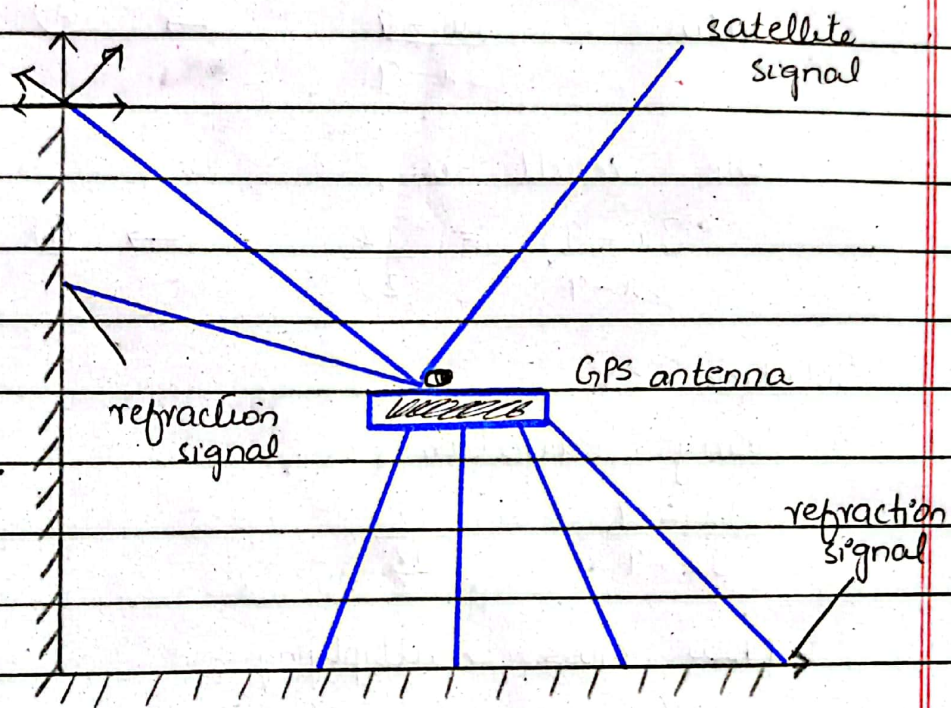 satellite
signal
GPS antenna
refraction
signal
refraction
signal